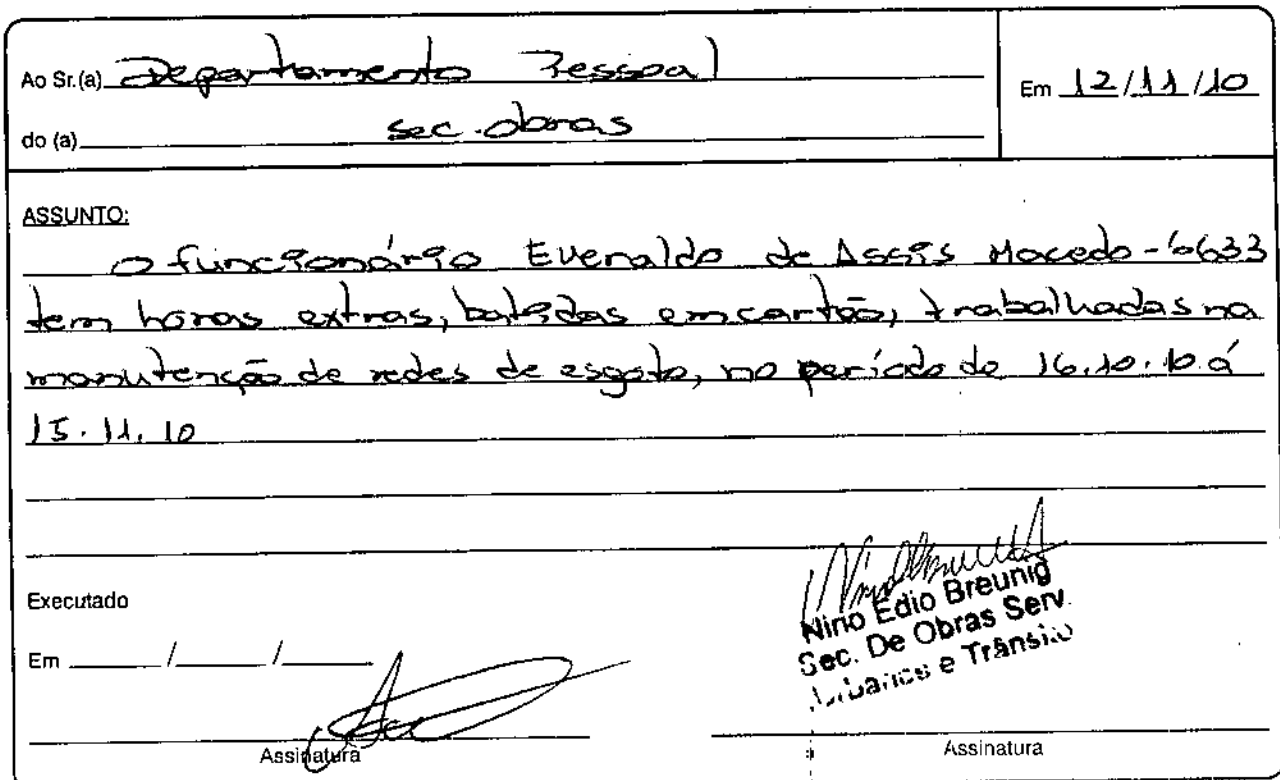 Ao Sr.(a) Departamento Pessoal
Em 12/11/10
do (a) sec. obras
ASSUNTO:
O funcionário Evenaldo de Assis Macedo - 6633
tem horas extras, batidas em cartão, trabalhadas na
manutenção de redes de esgoto, no período de 16.10.10 á
15.11.10
Executado
Em / /
Assinatura
Nino Edio Breunig
Sec. De Obras Serv.
Urbanos e Trânsito
Assinatura